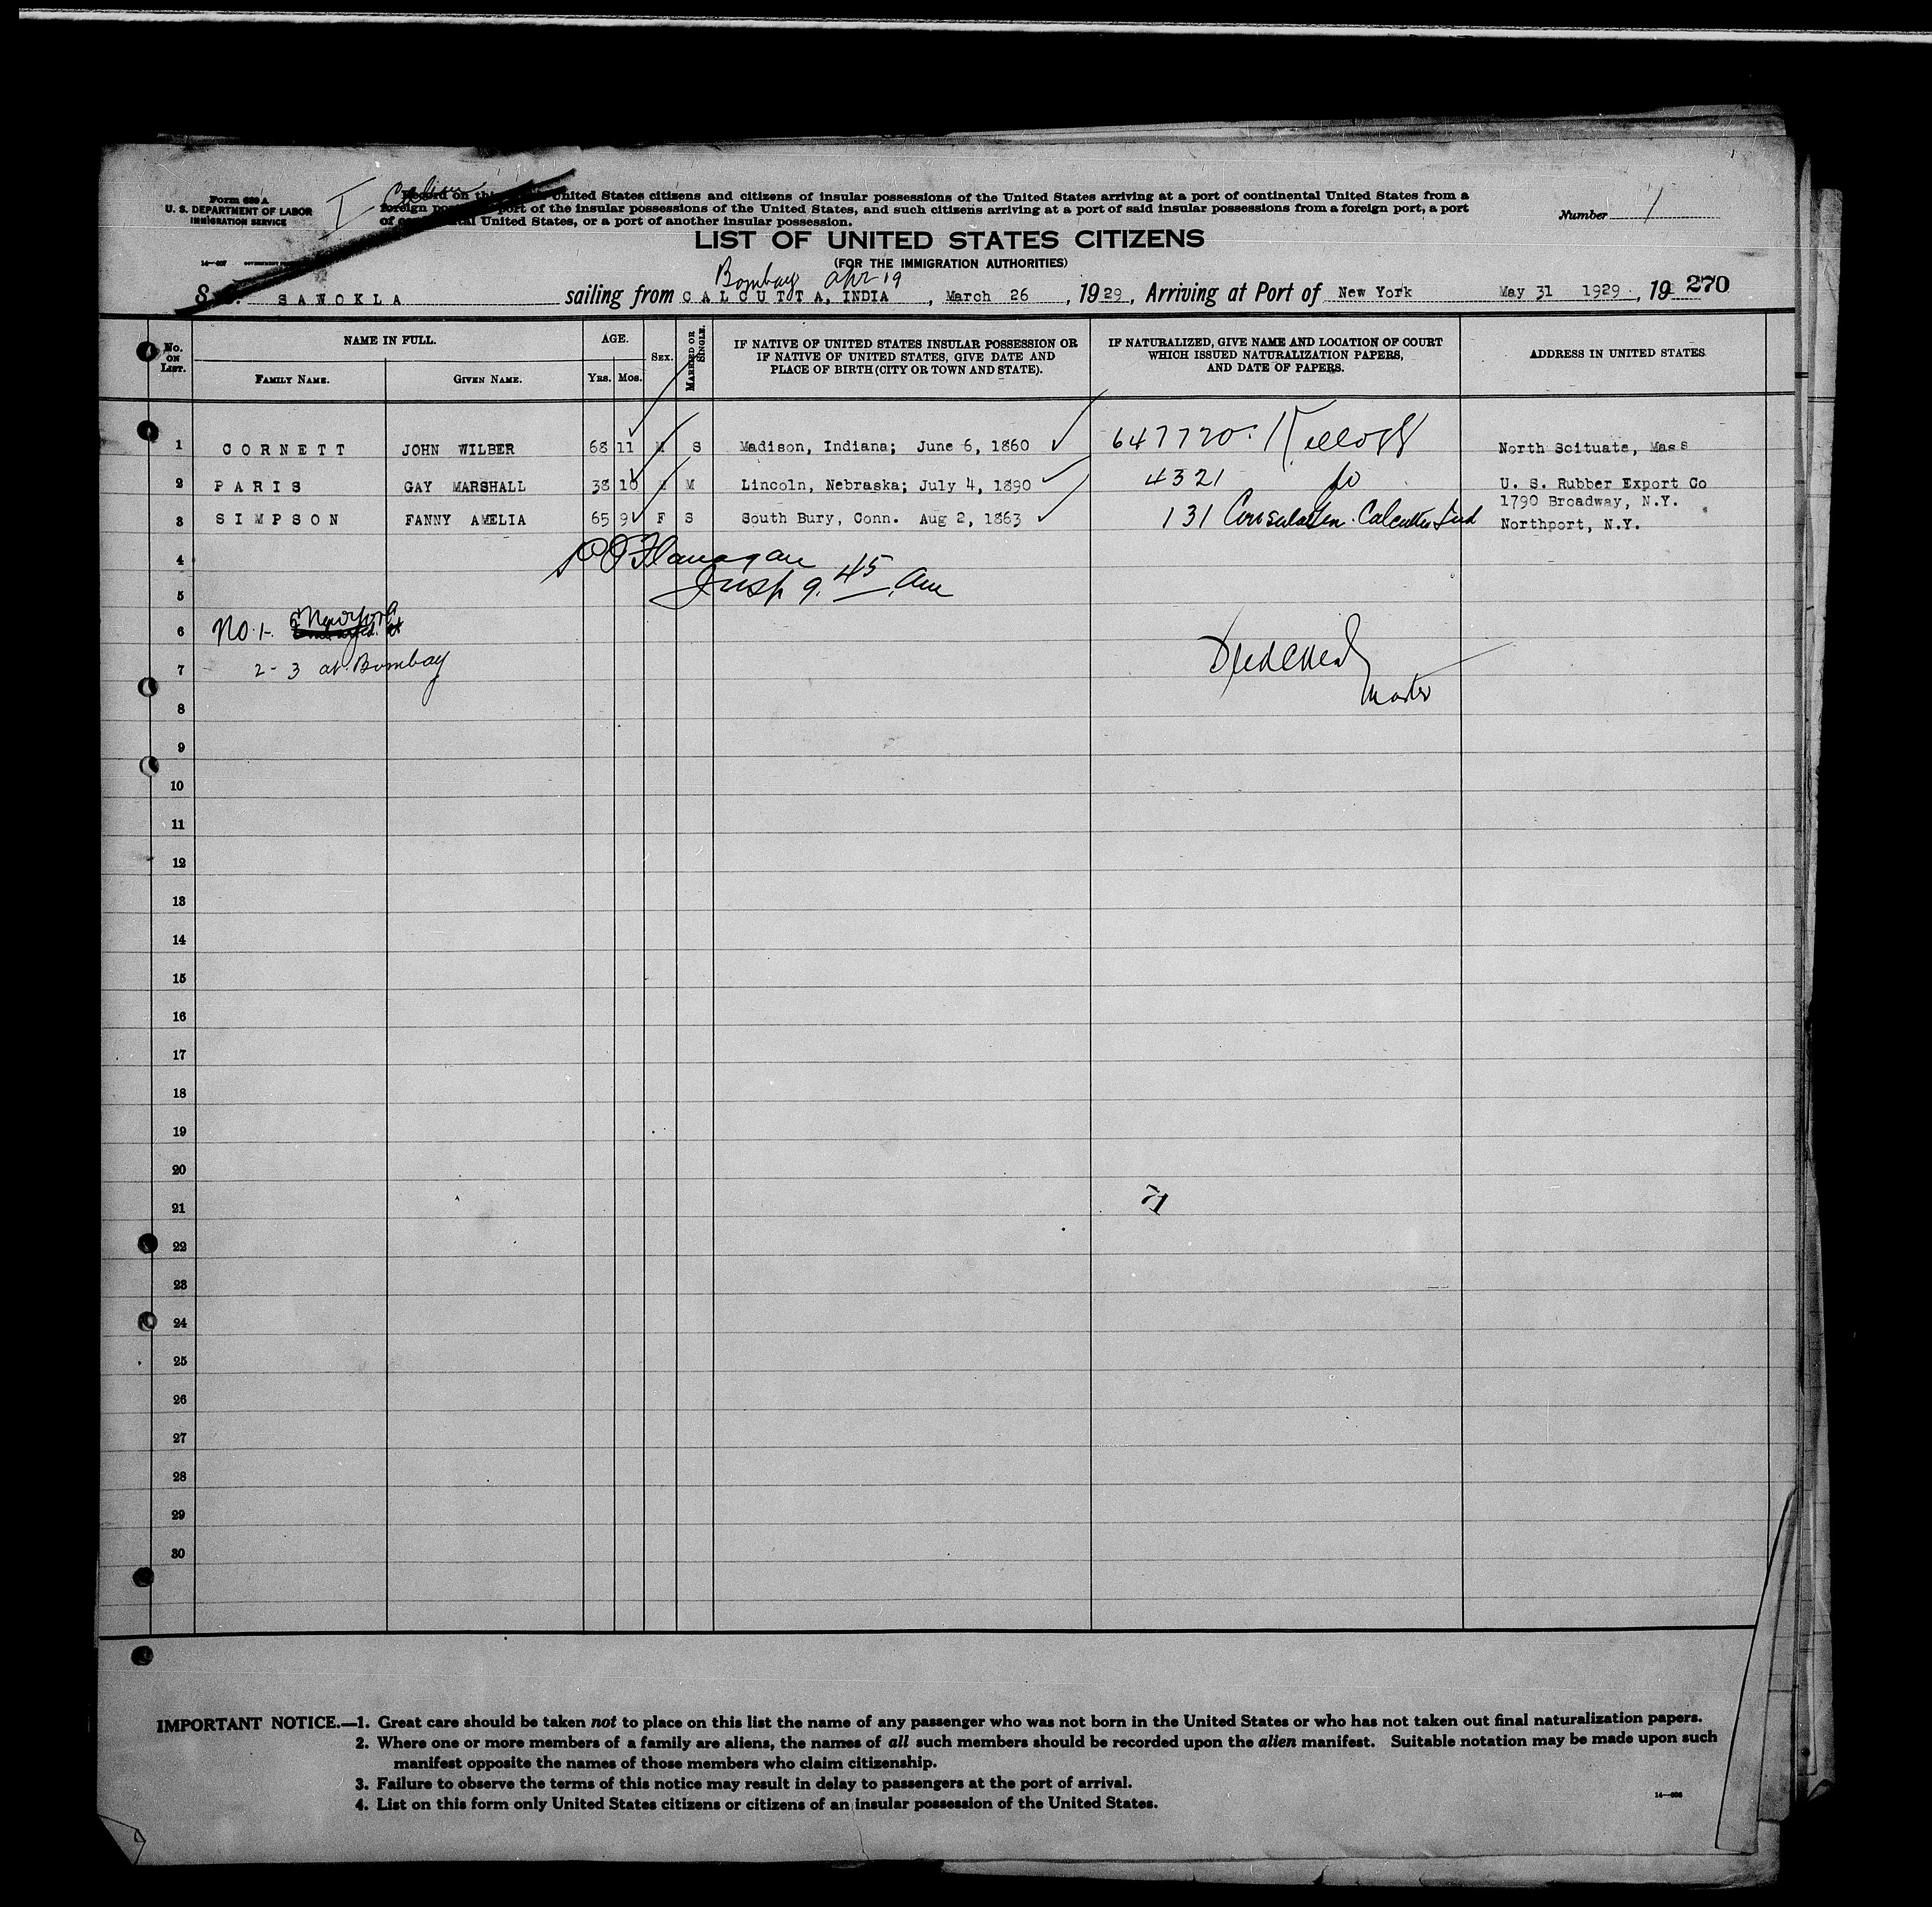 Form 630 A
U. S. DEPARTMENT OF LABOR
IMMIGRATION SERVICE
I Cabin
United States citizens and citizens of insular possessions of the United States arriving at a port of continental United States from a
foreign port of the insular possessions of the United States, and such citizens arriving at a port of said insular possessions from a foreign port, a port
of United States, or a port of another insular possession.
Number 1
LIST OF UNITED STATES CITIZENS
(FOR THE IMMIGRATION AUTHORITIES)
Bombay Apr 19
S. SAWOKLA sailing from CALCUTTA, INDIA, March 26, 1929, Arriving at Port of New York May 31 1929, 19 270
No. ON LIST.
NAME IN FULL.
FAMILY NAME. GIVEN NAME.
AGE.
YRS. MOS.
SEX.
MARRIED OR SINGLE.
IF NATIVE OF UNITED STATES INSULAR POSSESSION OR
IF NATIVE OF UNITED STATES, GIVE DATE AND
PLACE OF BIRTH (CITY OR TOWN AND STATE).
IF NATURALIZED, GIVE NAME AND LOCATION OF COURT
WHICH ISSUED NATURALIZATION PAPERS,
AND DATE OF PAPERS.
ADDRESS IN UNITED STATES
1 CORNETT JOHN WILBER 68 11 M S Madison, Indiana; June 6, 1860 647720 Kellogg North Scituate, Mass
2 PARIS GAY MARSHALL 38 10 M M Lincoln, Nebraska; July 4, 1890 4321 do U. S. Rubber Export Co
1790 Broadway, N.Y.
3 SIMPSON FANNY AMELIA 65 9 F S South Bury, Conn. Aug 2, 1863 131 Consulate Gen. Calcutta Ind Northport, N.Y.
4 O'Flanagan
5 Insp 9.45 Am
6 No. 1-
7 2-3 at Bombay
Master
8
9
10
11
12
13
14
15
16
17
18
19
20
21 71
22
23
24
25
26
27
28
29
30
IMPORTANT NOTICE.—1. Great care should be taken not to place on this list the name of any passenger who was not born in the United States or who has not taken out final naturalization papers.
2. Where one or more members of a family are aliens, the names of all such members should be recorded upon the alien manifest. Suitable notation may be made upon such
manifest opposite the names of those members who claim citizenship.
3. Failure to observe the terms of this notice may result in delay to passengers at the port of arrival.
4. List on this form only United States citizens or citizens of an insular possession of the United States.